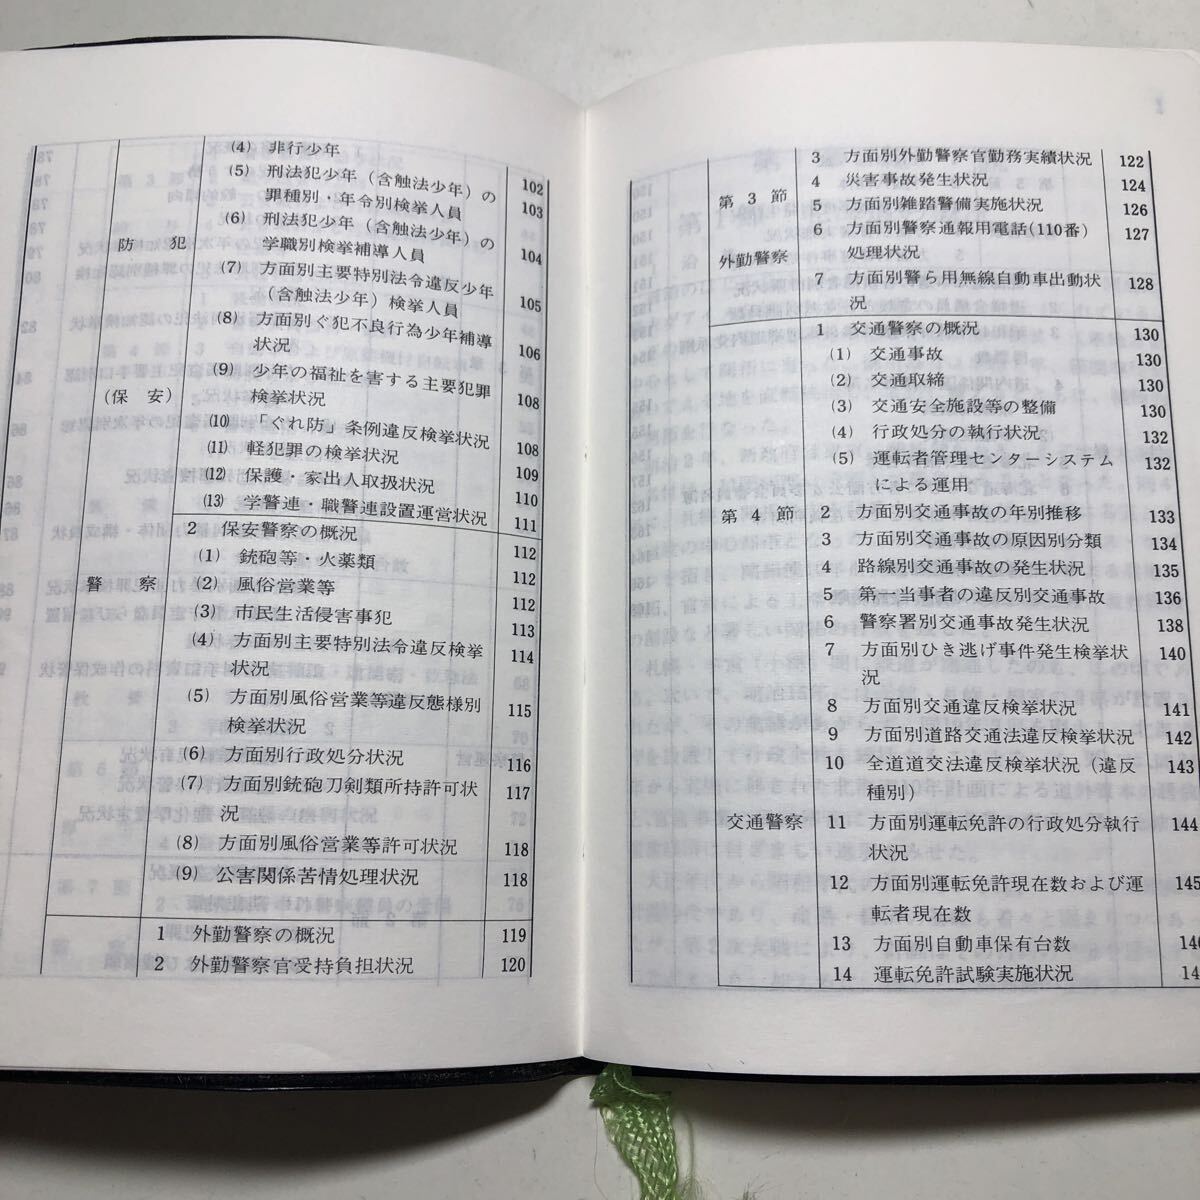 (4) 非行少年 102
(5) 刑法犯少年（含触法少年）の
罪種別・年令別検挙人員 103
(6) 刑法犯少年（含触法少年）の
学職別検挙補導人員 104
防犯
(7) 方面別主要特別法令違反少年
（含触法少年）検挙人員 105
(8) 方面別ぐ犯不良行為少年補導
状況 106
(9) 少年の福祉を害する主要犯罪
検挙状況 108
（保安）
(10) 「ぐれ防」条例違反検挙状況 108
(11) 軽犯罪の検挙状況 109
(12) 保護・家出人取扱状況 110
(13) 学警連・職警連設置運営状況 111
2 保安警察の概況 112
(1) 銃砲等・火薬類 112
警察
(2) 風俗営業等 112
(3) 市民生活侵害事犯 113
(4) 方面別主要特別法令違反検挙 114
状況
(5) 方面別風俗営業等違反態様別 115
検挙状況
(6) 方面別行政処分状況 116
(7) 方面別銃砲刀剣類所持許可状 117
況
(8) 方面別風俗営業等許可状況 118
(9) 公害関係苦情処理状況 118
1 外勤警察の概況 119
2 外勤警察官受持負担状況 120
3 方面別外勤警察官勤務実績状況 122
第3節
4 災害事故発生状況 124
5 方面別雑踏警備実施状況 126
6 方面別警察通報用電話(110番) 127
外勤警察
処理状況
7 方面別警ら用無線自動車出動状 128
況
1 交通警察の概況 130
(1) 交通事故 130
(2) 交通取締 130
(3) 交通安全施設等の整備 130
(4) 行政処分の執行状況 132
(5) 運転者管理センターシステム 132
による運用
第4節
2 方面別交通事故の年別推移 133
3 方面別交通事故の原因別分類 134
4 路線別交通事故の発生状況 135
5 第一当事者の違反別交通事故 136
6 警察署別交通事故発生状況 138
7 方面別ひき逃げ事件発生検挙状 140
況
8 方面別交通違反検挙状況 141
9 方面別道路交通法違反検挙状況 142
10 全道道交法違反検挙状況（違反 143
種別）
交通警察
11 方面別運転免許の行政処分執行 144
状況
12 方面別運転免許現在数および運 145
転者現在数
13 方面別自動車保有台数
14 運転免許試験実施状況